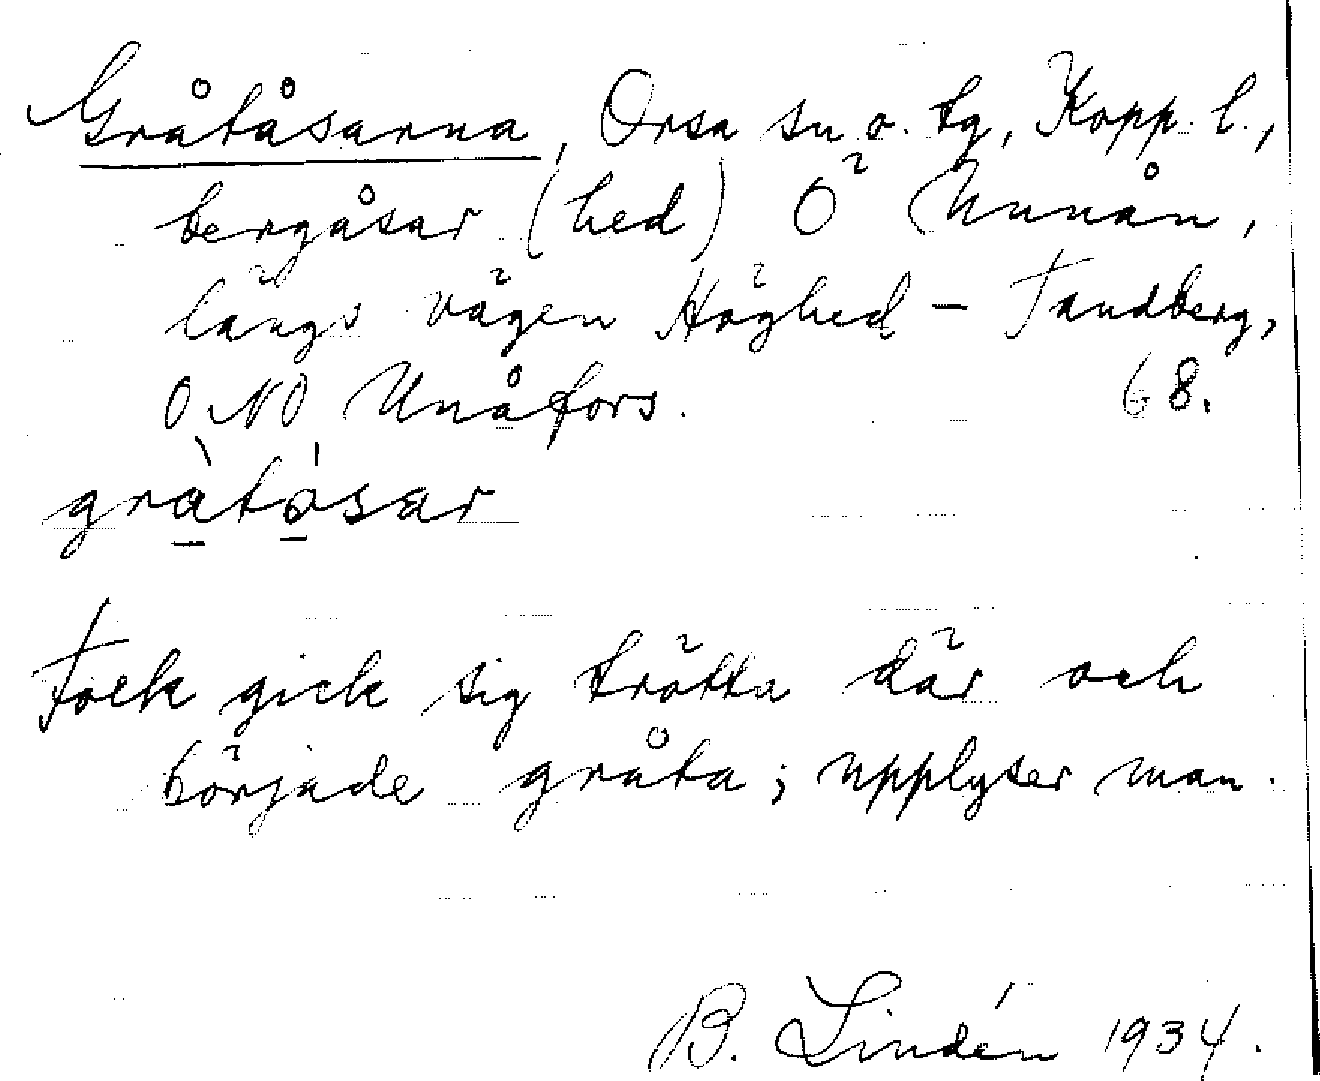 Gråtåsarna, Orsa sn o. tg, Kopp. l.,
bergåsar (hed) Ö Unnån,
längs vägen Höghed – Tandberg,
ONO Unåfors. 68.
gràtósar
Folk gick sig trötta där och
började gråta; upplyser man.
B. Lindén 1934.